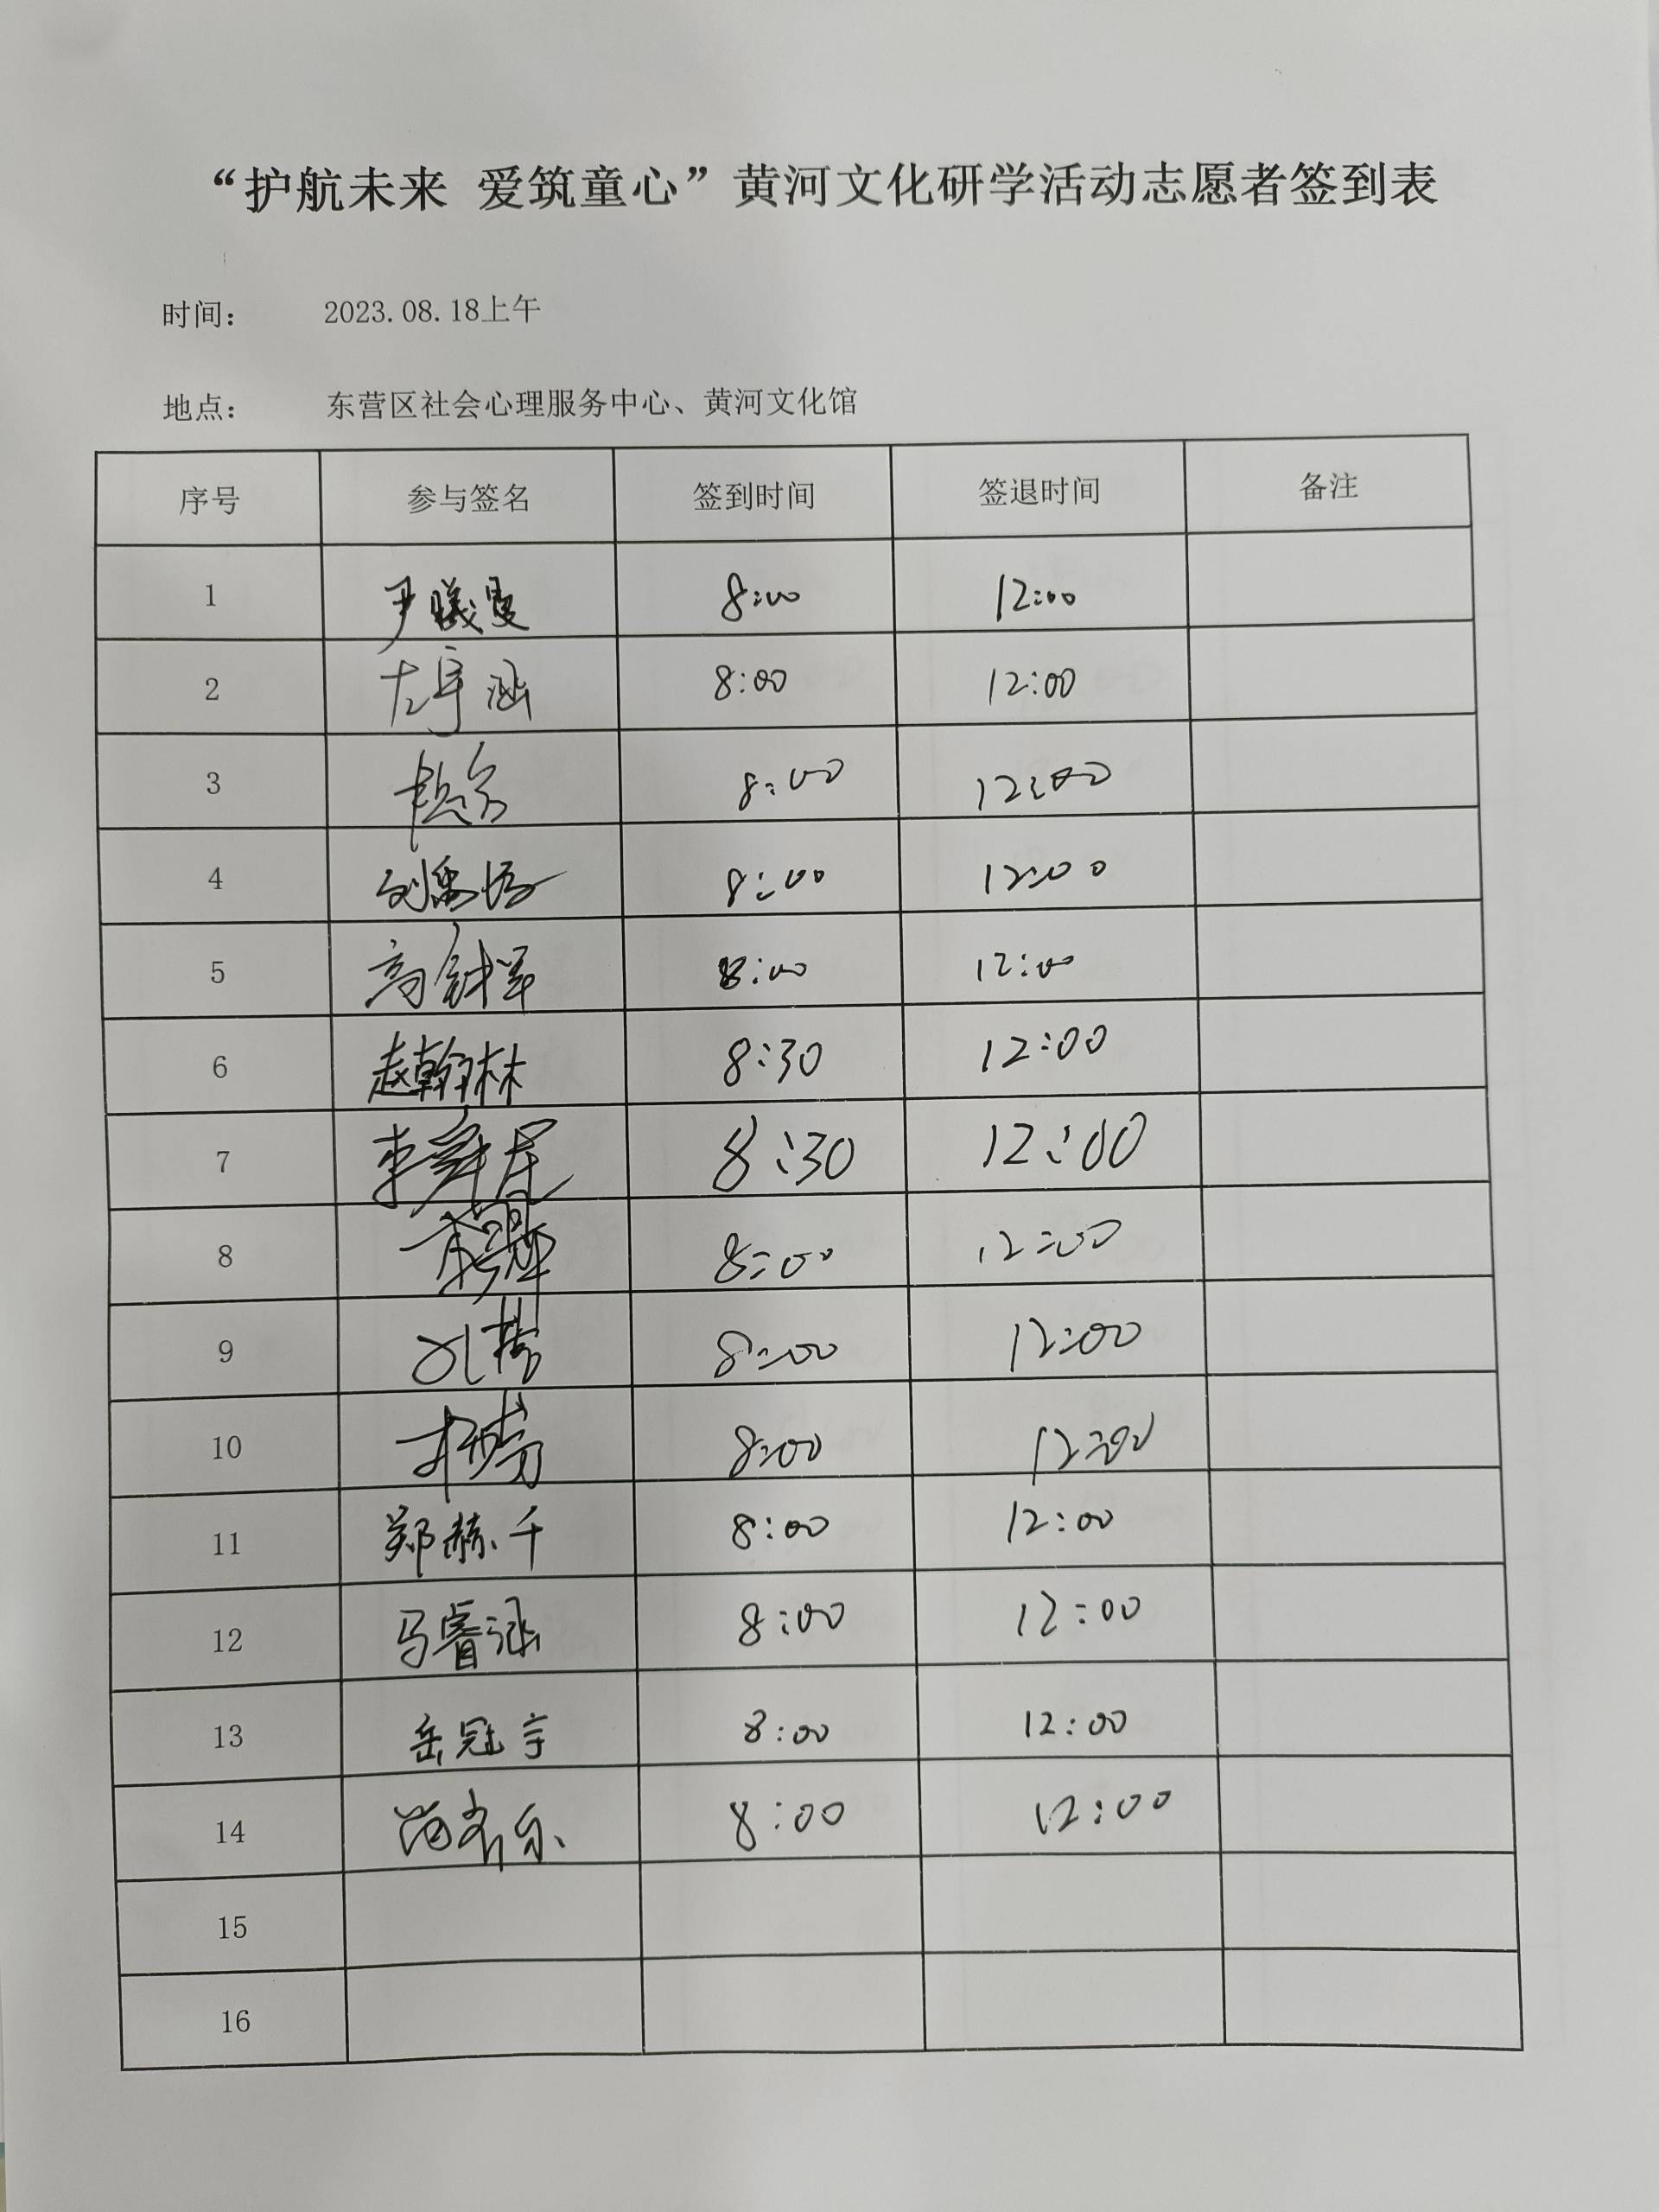 “护航未来 爱筑童心”黄河文化研学活动志愿者签到表
时间： 2023.08.18上午
地点： 东营区社会心理服务中心、黄河文化馆
序号 参与签名 签到时间 签退时间 备注
1 尹曦曼 8:00 12:00
2 左宇涵 8:00 12:00
3 8:00 12:00
4 8:00 12:00
5 高 8:00 12:00
6 赵翰林 8:30 12:00
7 李 8:30 12:00
8 8:00 12:00
9 8:00 12:00
10 8:00 12:00
11 郑赫千 8:00 12:00
12 马睿涵 8:00 12:00
13 岳冠宇 8:00 12:00
14 8:00 12:00
15
16